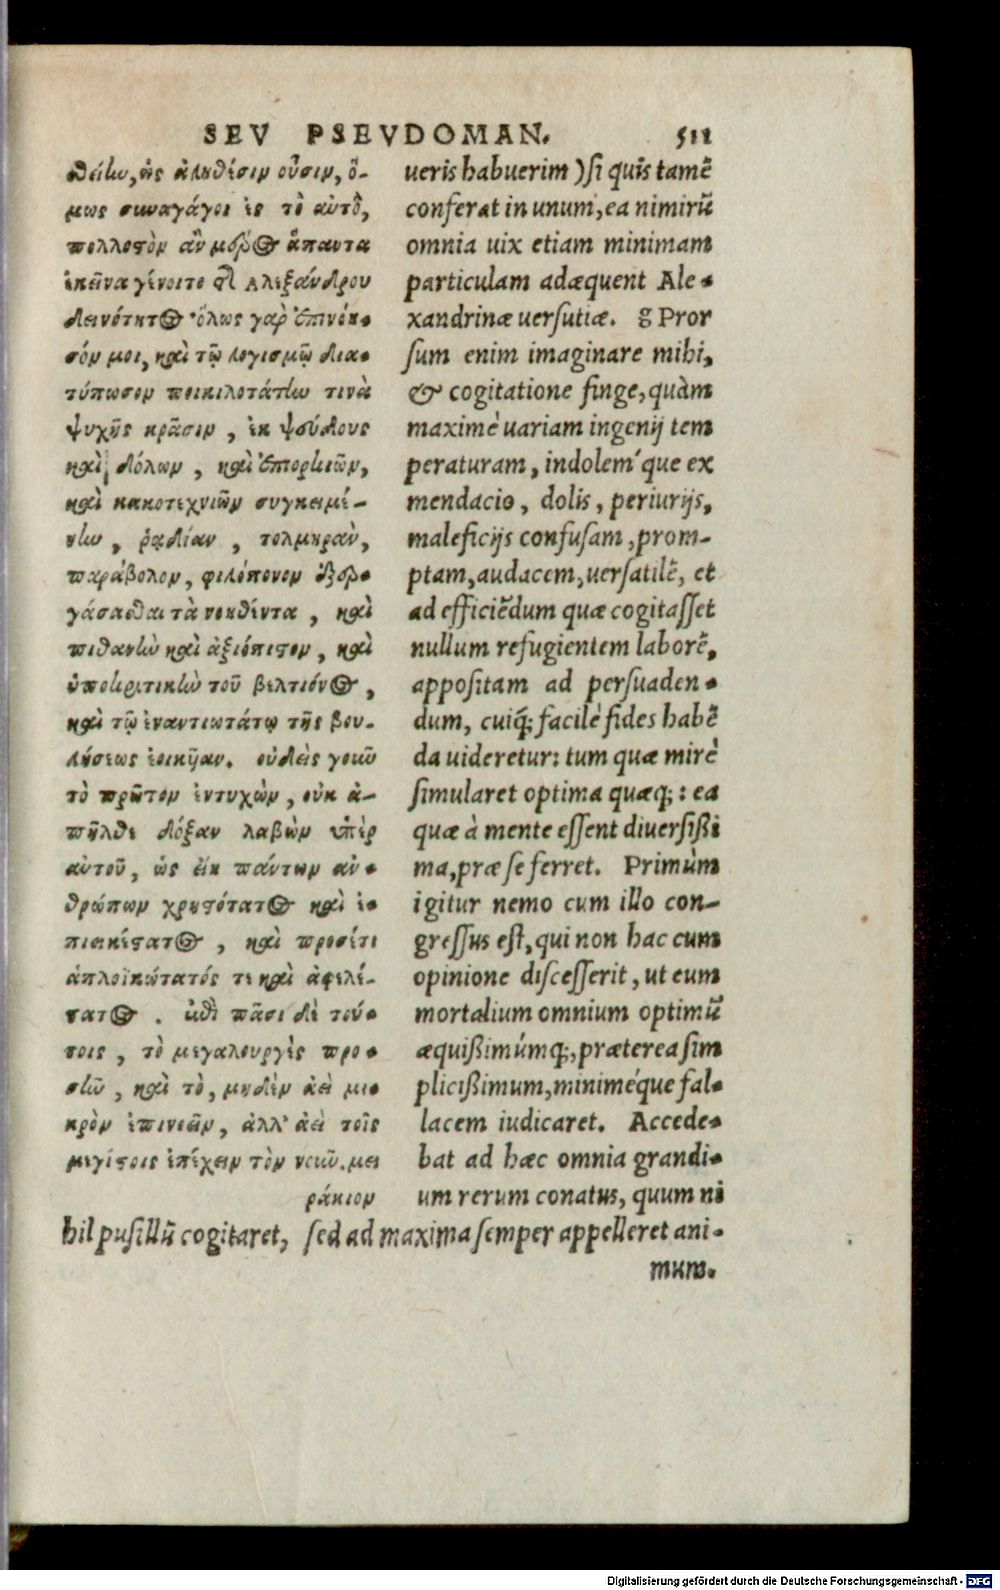 SEV PSEVDOMAN. 511
θείω, ὡς ἀληθέσιν οὖσιν, ὅ-
μως συναγάγοι ἐς τὸ αὐτὸ,
πολλοστὸν ἂν μέρος ἅπαντα
ἐκεῖνα γίνοιτο τῆς Ἀλεξάνδρου
δεινότητος. ὅλως γὰρ ἐπινόη-
σόν μοι, καὶ τῷ λογισμῷ δια-
τύπωσον ποικιλοτάτην τινὰ
ψυχῆς κρᾶσιν, ἐκ ψεύδους
καὶ δόλων, καὶ ἐπιορκιῶν,
καὶ κακοτεχνιῶν συγκειμέ-
νην, ῥᾳδίαν, τολμηρὰν,
παράβολον, φιλόπονον ἐξερ-
γάσασθαι τὰ νοηθέντα, καὶ
πιθανὴν καὶ ἀξιόπιστον, καὶ
ὑποκριτικὴν τοῦ βελτίονος,
καὶ τῷ ἐναντιωτάτῳ τῆς βου-
λήσεως ἐοικῆαν. οὐδεὶς γοῦν
τὸ πρῶτον ἐντυχὼν, οὐκ ἀ-
πῆλθε δόξαν λαβὼν ὑπὲρ
αὐτοῦ, ὡς εἴη πάντων ἀν-
θρώπων χρηστότατος καὶ ἐ-
πιεικέστατος, καὶ προσέτι
ἁπλοϊκώτατός τε καὶ ἀφελέ-
στατος. ἐπὶ πᾶσι δὲ τού-
τοις, τὸ μεγαλουργὲς προ-
σῆν, καὶ τὸ, μηδὲν ἀεὶ μι-
κρὸν ἐπινοεῖν, ἀλλ' ἀεὶ τοῖς
μεγίστοις ἐπέχειν τὸν νοῦν. μει
ράκιον
ueris habuerim) si quis tamẽ
conferat in unum, ea nimirũ
omnia uix etiam minimam
particulam adæquent Ale-
xandrinæ uersutiæ. g Pror
sum enim imaginare mihi,
& cogitatione finge, quàm
maximè uariam ingenij tem
peraturam, indolem'que ex
mendacio, dolis, periurijs,
maleficijs confusam, prom-
ptam, audacem, uersatilẽ, et
ad efficiẽdum quæ cogitasset
nullum refugientem laborẽ,
appositam ad persuaden-
dum, cuiq; facilè fides habẽ
da uideretur: tum quæ mirè
simularet optima quæq; : ea
quæ à mente essent diuersißi
ma, præ se ferret. Primùm
igitur nemo cum illo con-
gressus est, qui non hac cum
opinione discesserit, ut eum
mortalium omnium optimũ
æquißimúmq;, præterea sim
plicißimum, minimé'que fal-
lacem iudicaret. Accede-
bat ad hæc omnia grandi-
um rerum conatus, quum ni
hil pusillũ cogitaret, sed ad maxima semper appelleret ani-
mum.
Digitalisierung gefördert durch die Deutsche Forschungsgemeinschaft - DFG